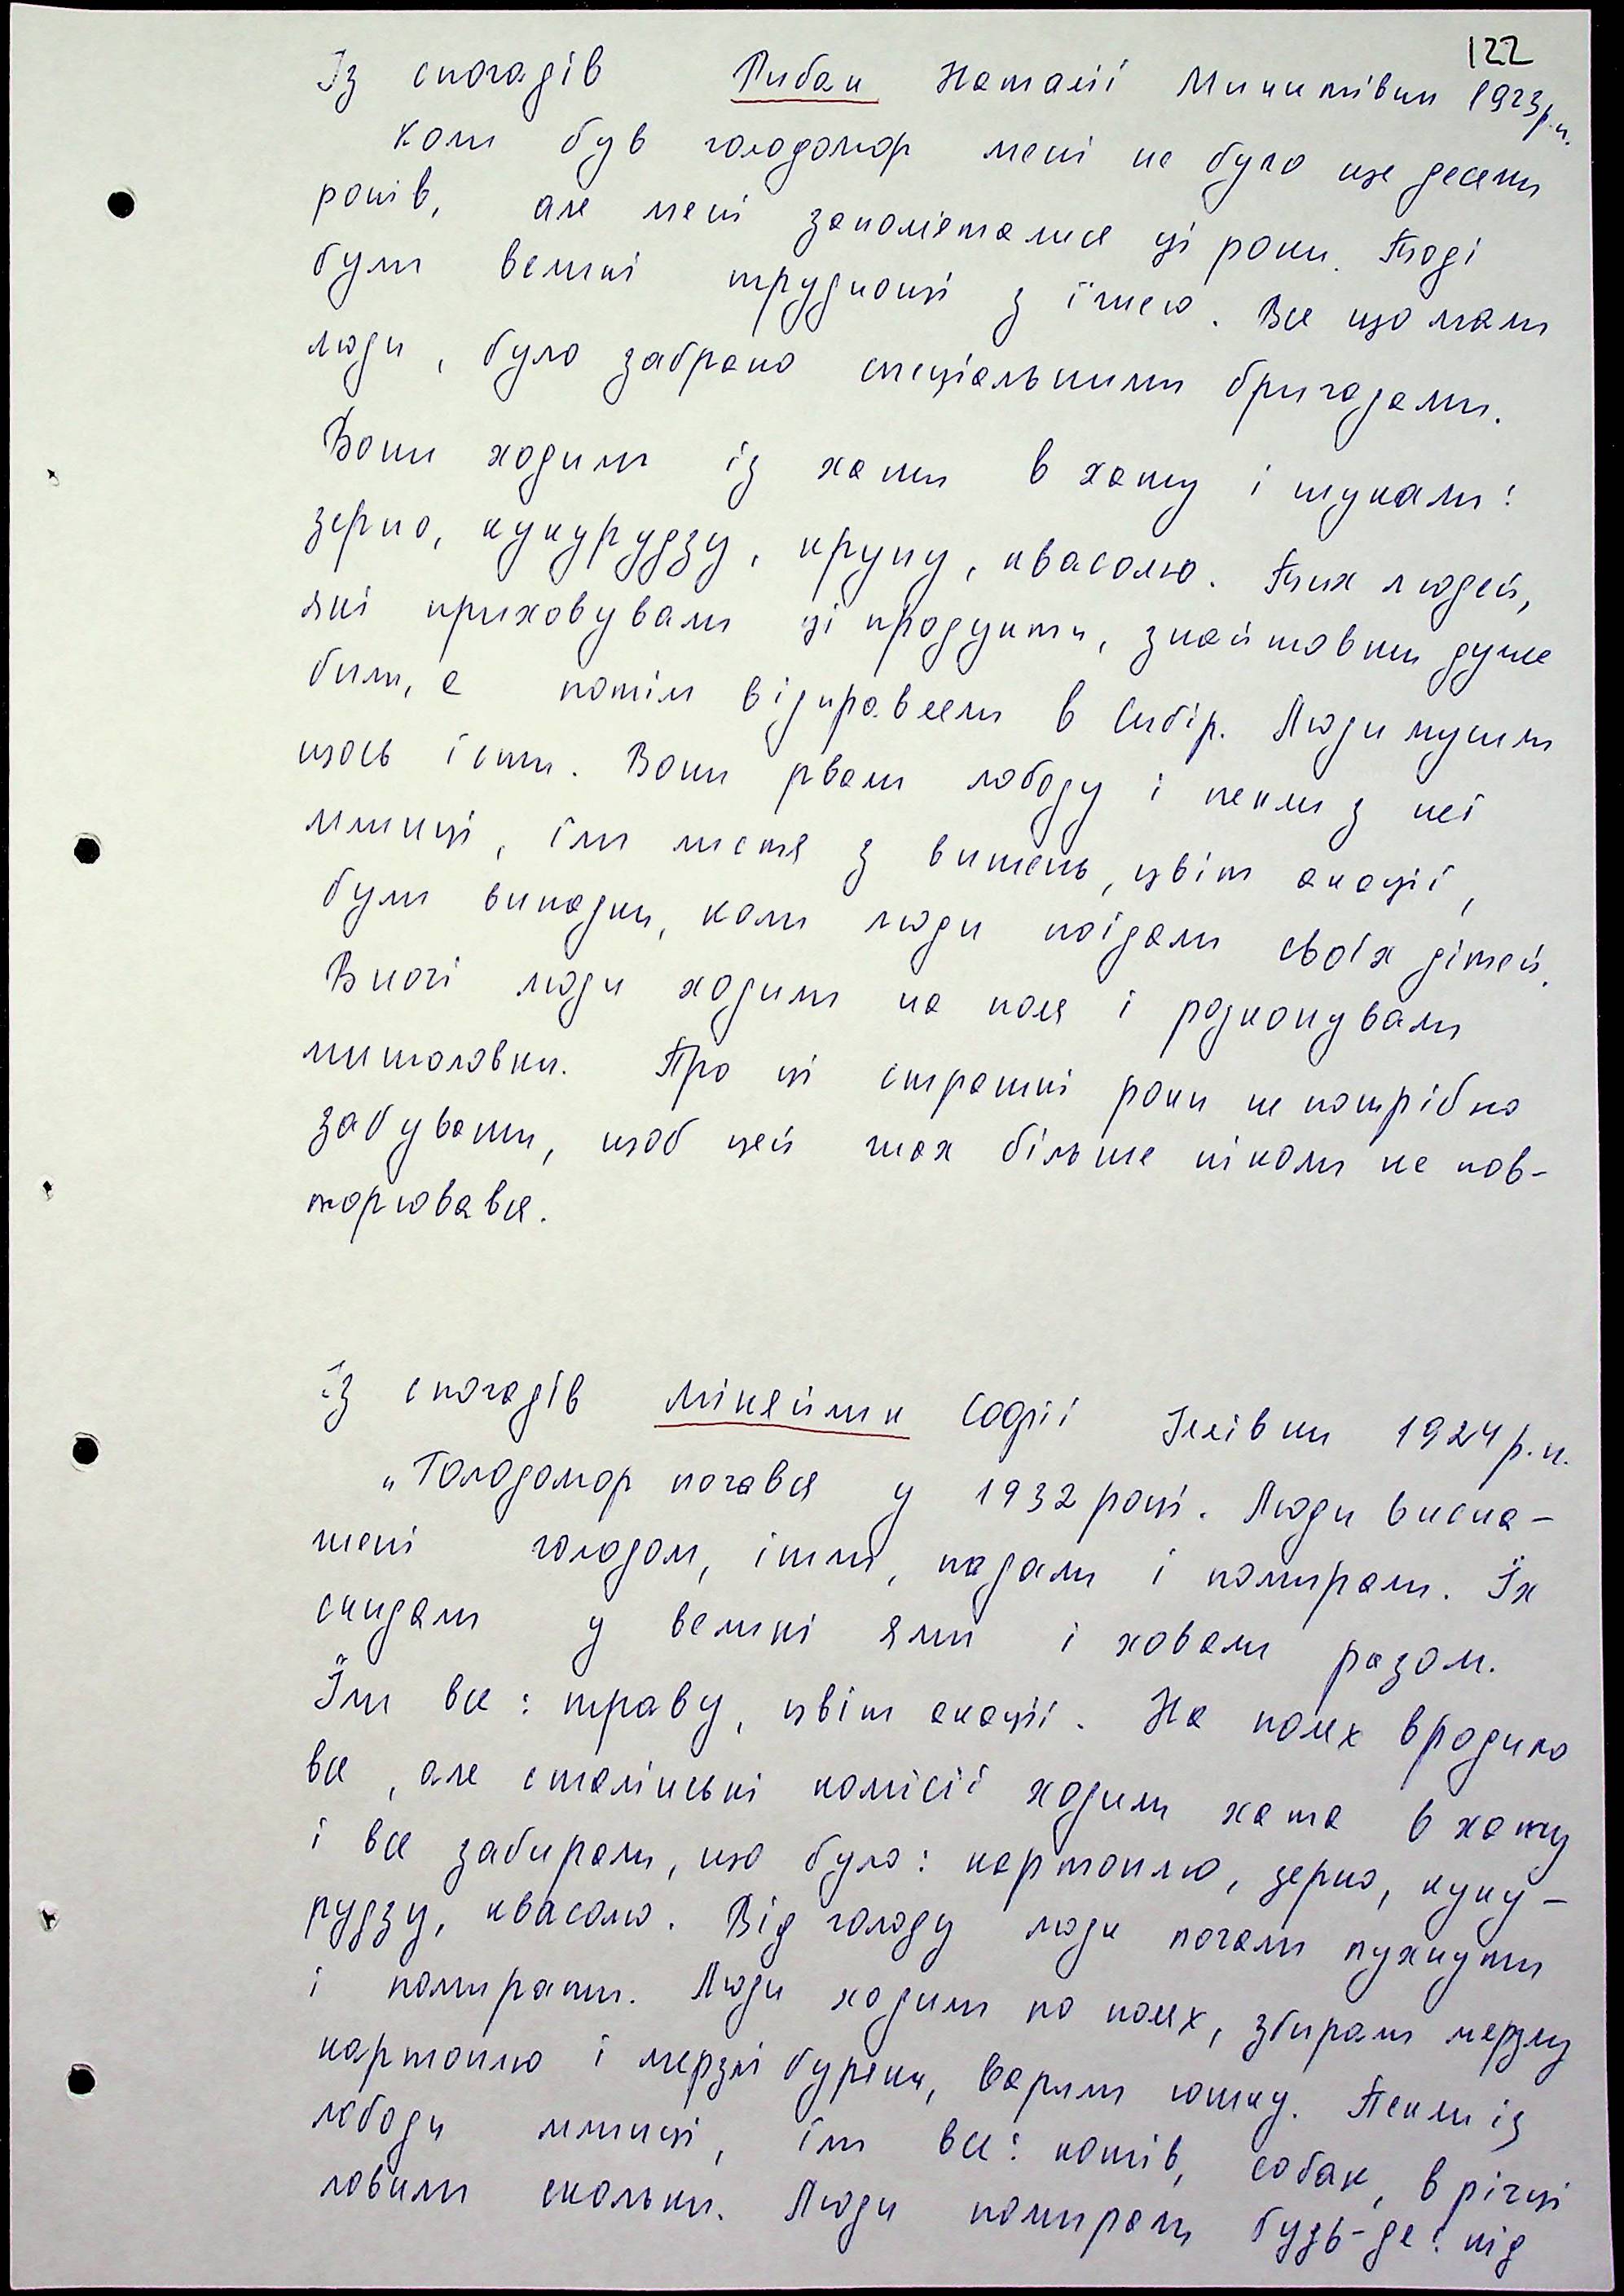 122
Із спогадів Рибак Наталії Микитівни 1923р.н.
Коли був голодомор мені не було ще десяти
років, але мені запам'яталися ці роки. Тоді
були великі труднощі з їжею. Все що мали
люди, було забрано спеціальними бригадами.
Вони ходили із хати в хату і шукали:
зерно, кукурудзу, крупу, квасолю. Тих людей,
які приховували ці продукти, знайшовши дуже
били, а потім відправляли в Сибір. Люди мусили
щось їсти. Вони рвали лободу і пекли з неї
млинці, їли листя з вишень, цвіт акації,
були випадки, коли люди поїдали своїх дітей.
Вночі люди ходили на поля і розкопували
мишоловки. Про ці страшні роки не потрібно
забувати, щоб цей жах більше ніколи не пов-
торювався.
Із спогадів Мікяйлик Софії Іллівни 1924р.н.
„Голодомор почався у 1932 році. Люди висна-
жені голодом, ішли, падали і помирали. Їх
скидали у великі ями і ховали разом.
Їли все: траву, цвіт акації. На полях вродило
все, але сталінські комісії ходили хата в хату
і все забирали, що було: картоплю, зерно, куку-
рудзу, квасолю. Від голоду люди почали пухнути
і помирати. Люди ходили по полях, збирали мерзлу
картоплю і мерзлі буряки, варили юшку. Пекли із
лободи млинці, їли все: котів, собак, в річці
ловили скольки. Люди помирали будь-де: під